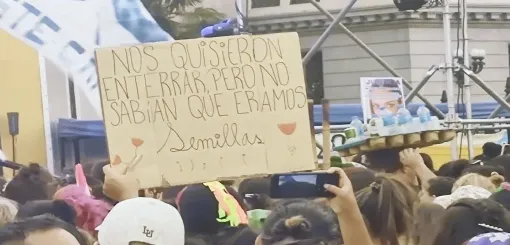 NOS QUISIERON
ENTERRAR, PERO NO
SABÍAN QUE ERAMOS
Semillas